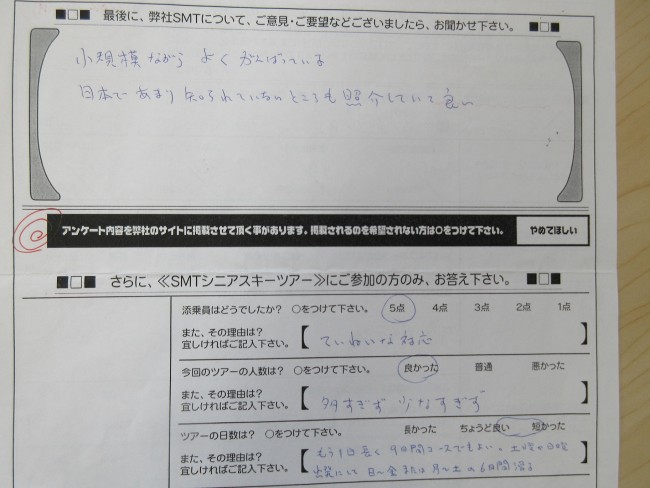 ■□■ 最後に、弊社SMTについて、ご意見・ご要望などございましたら、お聞かせ下さい。 ■□■
小規模ながら よく がんばっている
日本で あまり 知られていないところも 照介していて 良い
アンケート内容を弊社のサイトに掲載させて頂く事があります。掲載されるのを希望されない方は○をつけて下さい。 やめてほしい
■□■ さらに、≪SMTシニアスキーツアー≫にご参加の方のみ、お答え下さい。 ■□■
添乗員はどうでしたか? ○をつけて下さい。 5点 4点 3点 2点 1点
また、その理由は?
宜しければご記入下さい。【 ていねいな対応 】
今回のツアーの人数は? ○をつけて下さい。 良かった 普通 悪かった
また、その理由は?
宜しければご記入下さい。【 多すぎず 少なすぎず 】
ツアーの日数は? ○をつけて下さい。 長かった ちょうど良い 短かった
また、その理由は?
宜しければご記入下さい。【 もう1日長く 9日間コースでもよい。土曜か日曜
出発にして 日〜金または月〜土の6日間滑る 】